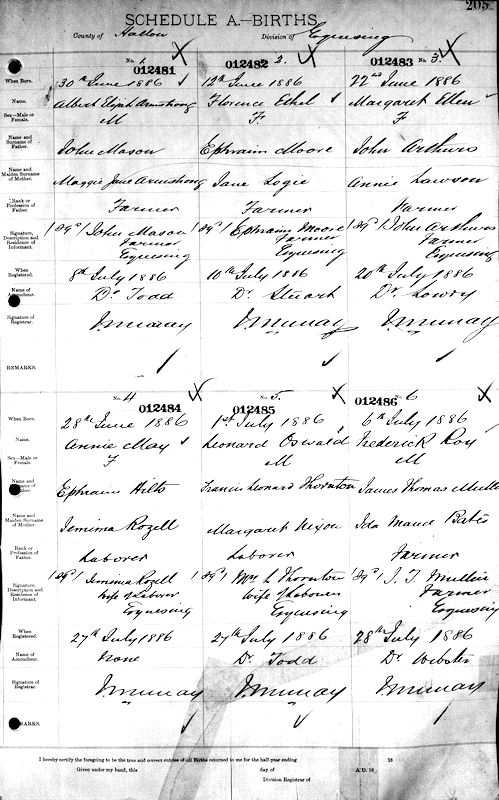 205
SCHEDULE A.—BIRTHS.
County of Halton Division of Esquesing
No. 1 No. 2. No. 3.
012481 012482 012483
When Born. 30th June 1886 12th June 1886 22nd June 1886
Name. Albert Elijah Armstrong Florence Ethel Margaret Ellen
Sex—Male or Female. M F. F
Name and Surname of Father. John Mason Ephraim Moore John Arthurs
Name and Maiden Surname of Mother. Maggie Jane Armstrong Jane Logie Annie Lawson
Rank or Profession of Father. Farmer Farmer Farmer
Signature, Description and Residence of Informant. (Sgd) John Mason (Sgd) Ephraim Moore (Sgd) John Arthurs
Farmer Farmer Farmer
Esquesing Esquesing Esquesing
When Registered. 8th July 1886 10th July 1886 20th July 1886
Name of Accoucheur. Dr Todd Dr. Stuart Dr. Lowry
Signature of Registrar. J. Murray J. Murray J. Murray
REMARKS.
No. 4 No. 5. No. 6
012484 012485 012486
When Born. 28th June 1886 1st July 1886 6th July 1886
Name. Annie May Leonard Oswald Frederick Roy
Sex—Male or Female. F M M
Name and Father. Ephraim Hilts Francis Leonard Thornton James Thomas
Name and Maiden Surname of Mother. Jemima Rozell Margaret Nixon Ida Maud Bates
Rank or Profession of Father. Laborer Laborer Farmer
Signature, Description and Residence of Informant. (Sgd) Jemima Rozell (Sgd) Mrs L Thornton (Sgd) J. T. Mullin
Wife of Laborer Wife of Laborer Farmer
Esquesing Esquesing Esquesing
When Registered. 27th July 1886 27th July 1886 28th July 1886
Name of Accoucheur. None Dr. Todd Dr. Webster
Signature of Registrar. J. Murray J. Murray J. Murray
REMARKS.
I hereby certify the foregoing to be the true and correct entries of all Births returned to me for the half-year ending 18
Given under my hand, this day of A.D. 18
Division Registrar of